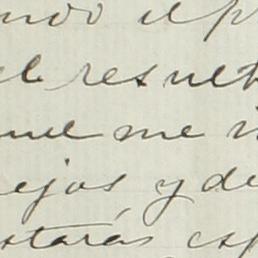 ndo el p
el result
que me v
ejos, y de
starás esp